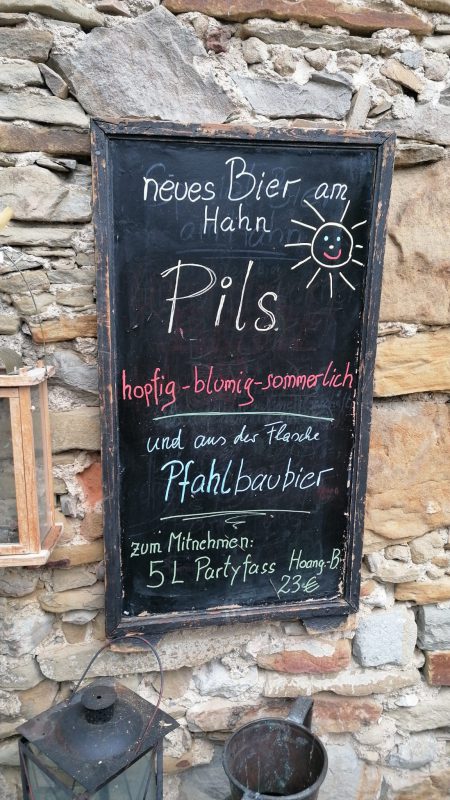 neues Bier am
Hahn
Pils
hopfig-blumig-sommerlich
und aus der Flasche
Pfahlbaubier
zum Mitnehmen:
5 L Partyfass Hoang-B
23€